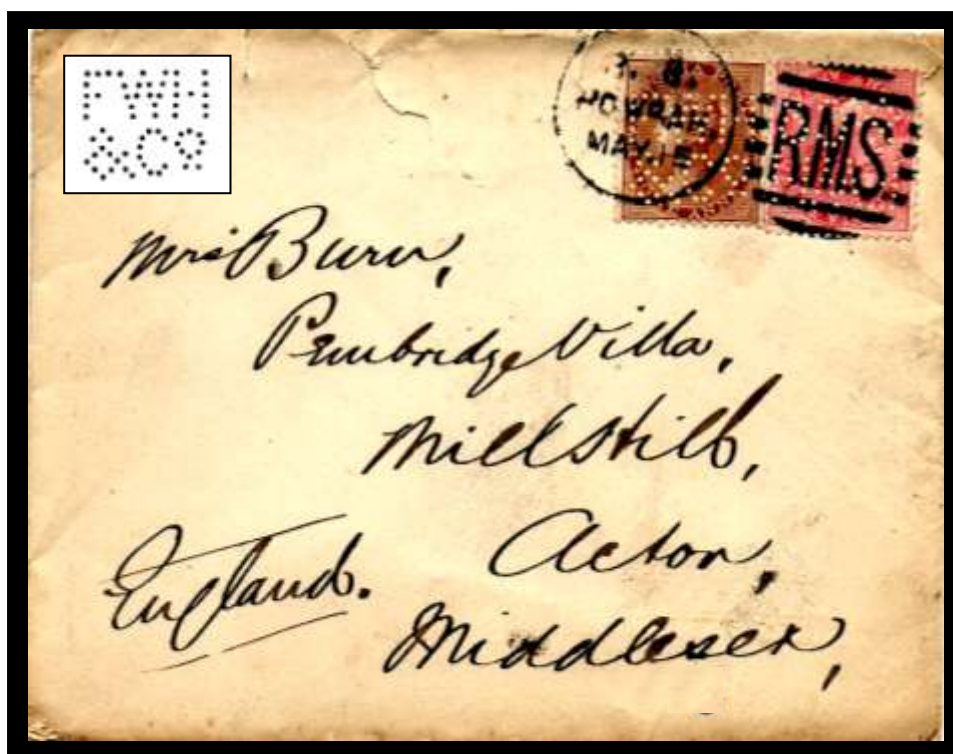 FWH
&Co
HOWRAH
MAY.15
RMS
Mrs Burn,
Pembridge Villa,
Mill Hill,
Acton,
England.
Middlesex,